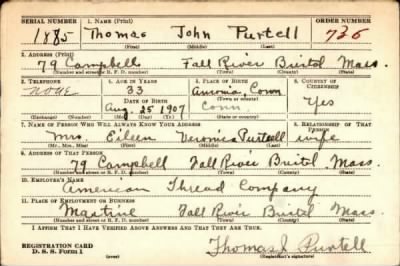 SERIAL NUMBER 1. NAME (Print) ORDER NUMBER
1885 Thomas John Purtell 736
(First) (Middle) (Last)
2. ADDRESS (Print)
79 Campbell Fall River Bristol Mass.
(Number and street or R. F. D. number) (Town) (County) (State)
3. TELEPHONE 4. AGE IN YEARS 5. PLACE OF BIRTH 6. COUNTRY OF CITIZENSHIP
None 33 Ansonia, Conn Yes
DATE OF BIRTH (Town or county)
Aug 25 1907 Conn.
(Exchange) (Number) (Mo.) (Day) (Yr.) (State or country)
7. NAME OF PERSON WHO WILL ALWAYS KNOW YOUR ADDRESS 8. RELATIONSHIP OF THAT PERSON
Mrs Eileen Veronica Purtell wife
(Mr., Mrs., Miss) (First) (Middle) (Last)
9. ADDRESS OF THAT PERSON
79 Campbell Fall River Bristol Mass.
(Number and street or R. F. D. number) (Town) (County) (State)
10. EMPLOYER'S NAME
American Thread Company
11. PLACE OF EMPLOYMENT OR BUSINESS
Fall River Bristol Mass.
(Number and street or R. F. D. number) (Town) (County) (State)
I AFFIRM THAT I HAVE VERIFIED ABOVE ANSWERS AND THAT THEY ARE TRUE.
REGISTRATION CARD
D. S. S. Form 1 (over) Thomas J Purtell
(Registrant's signature)